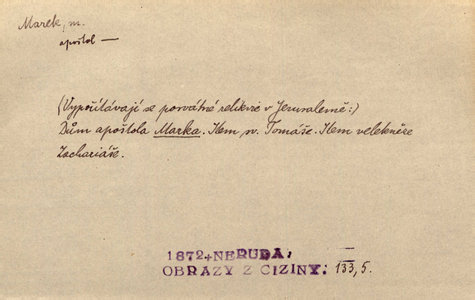 Marek, m.
apoštol —
(Vypočítávají se posvátné relikvie v Jerusalemě:)
Dům apoštola Marka. Item sv. Tomáše. Item velekněze
Zachariáše.
1872+NERUDA,
OBRAZY Z CIZINY. 133,5.